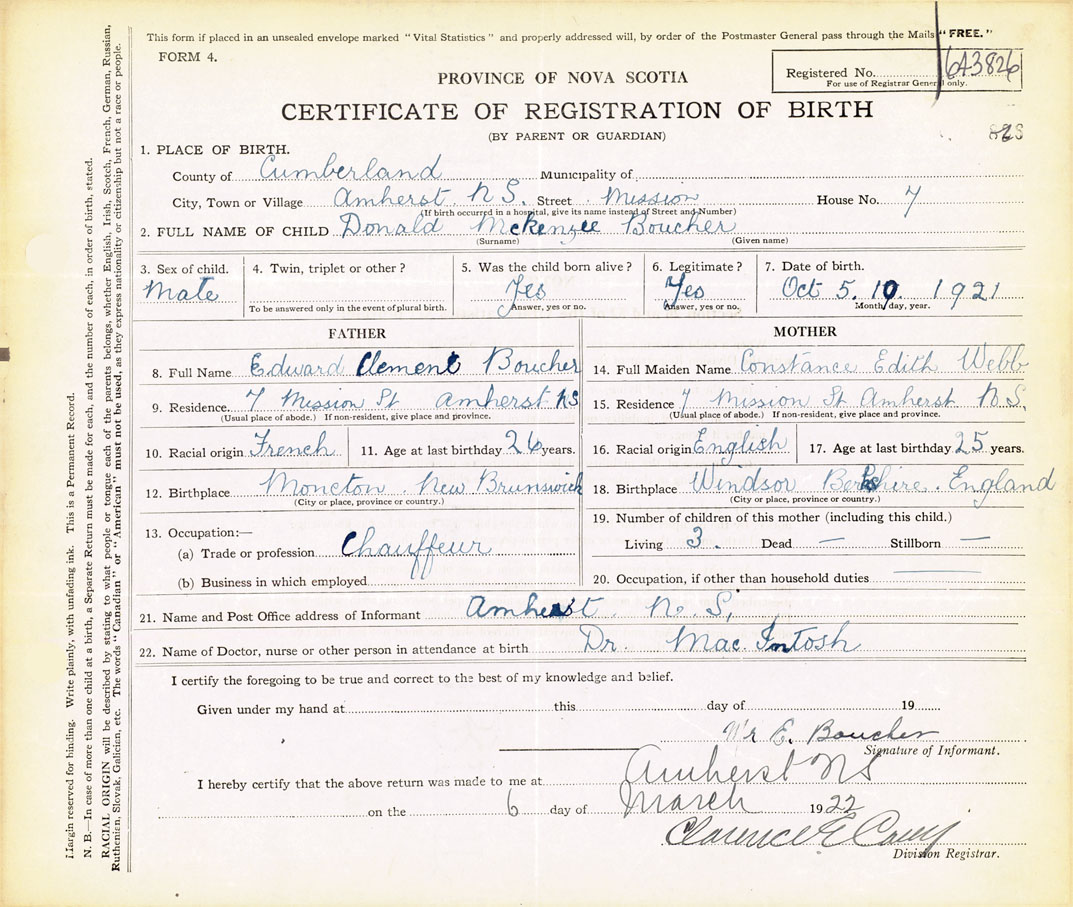 This form if placed in an unsealed envelope marked "Vital Statistics" and properly addressed will, by order of the Postmaster General pass through the Mails "FREE."
FORM 4.
PROVINCE OF NOVA SCOTIA
Registered No. 643826
For use of Registrar General only.
CERTIFICATE OF REGISTRATION OF BIRTH
(BY PARENT OR GUARDIAN)
1. PLACE OF BIRTH.
County of Cumberland Municipality of
City, Town or Village Amherst N S. Street Mission House No. 7
(If birth occurred in a hospital, give its name instead of Street and Number)
2. FULL NAME OF CHILD Donald McKenzee Boucher
(Surname) (Given name)
3. Sex of child. 4. Twin, triplet or other? 5. Was the child born alive? 6. Legitimate? 7. Date of birth.
Male Yes Yes Oct 5. 10. 1921
To be answered only in the event of plural birth. Answer, yes or no. Answer, yes or no. Month, day, year.
FATHER MOTHER
8. Full Name Edward Clement Boucher 14. Full Maiden Name Constance Edith Webb
9. Residence. 7 Mission St Amherst NS 15. Residence 7 Mission St Amherst N.S.
(Usual place of abode.) If non-resident, give place and province. (Usual place of abode.) If non-resident, give place and province.
10. Racial origin French 11. Age at last birthday 26 years. 16. Racial origin English 17. Age at last birthday 25 years.
12. Birthplace Moncton New Brunswick 18. Birthplace Windsor Berkshire. England
(City or place, province or country.) (City or place, province or country.)
13. Occupation:— 19. Number of children of this mother (including this child.)
(a) Trade or profession Chauffeur Living 3. Dead — Stillborn —
(b) Business in which employed 20. Occupation, if other than household duties —
21. Name and Post Office address of Informant Amherst N. S,
22. Name of Doctor, nurse or other person in attendance at birth Dr. Mac. Intosh
I certify the foregoing to be true and correct to the best of my knowledge and belief.
Given under my hand at this day of 19
Mr E. Boucher
Signature of Informant.
I hereby certify that the above return was made to me at Amherst NS
on the 6 day of March 1922
Clarence E
Division Registrar.
Margin reserved for binding. Write plainly, with unfading ink. This is a Permanent Record.
N. B.—In case of more than one child at a birth, a Separate Return must be made for each, and the number of each, in order of birth, stated.
RACIAL ORIGIN will be described by stating to what people or tongue each of the parents belongs, whether English, Irish, Scotch, French, German, Russian,
Ruthenian, Slovak, Galician, etc. The words "Canadian" or "American" must not be used, as they express nationality or citizenship but not a race or people.